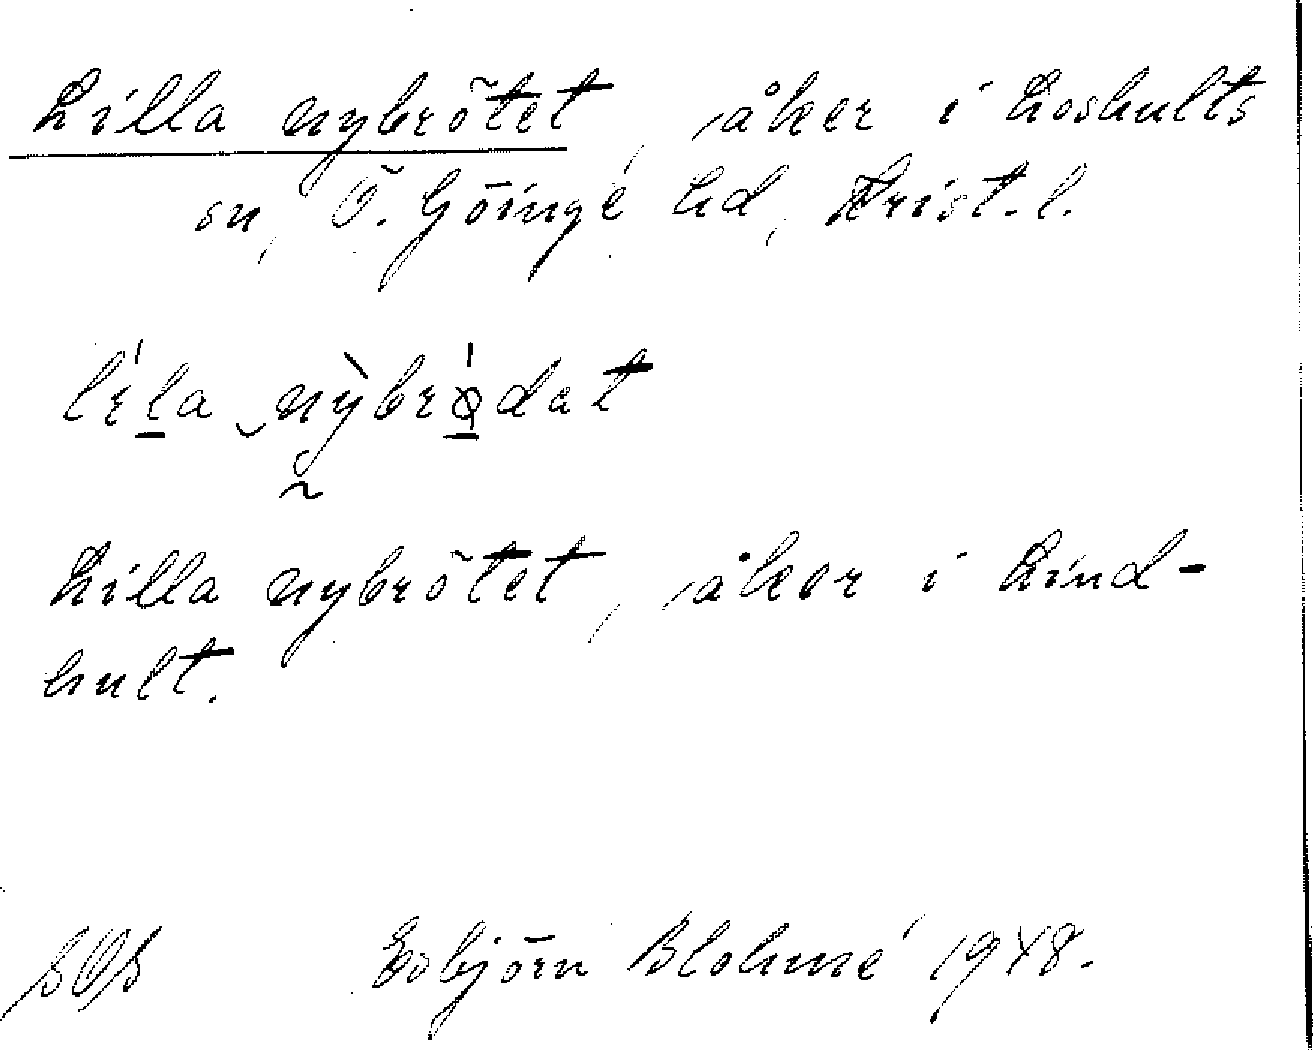 Lilla nybrötet, åker i Loshults
sn, Ö. Göinge hd, Krist. l.
Lilla nybrötet, åker i Lind-
hult.
Esbjörn Blohmé 1948.